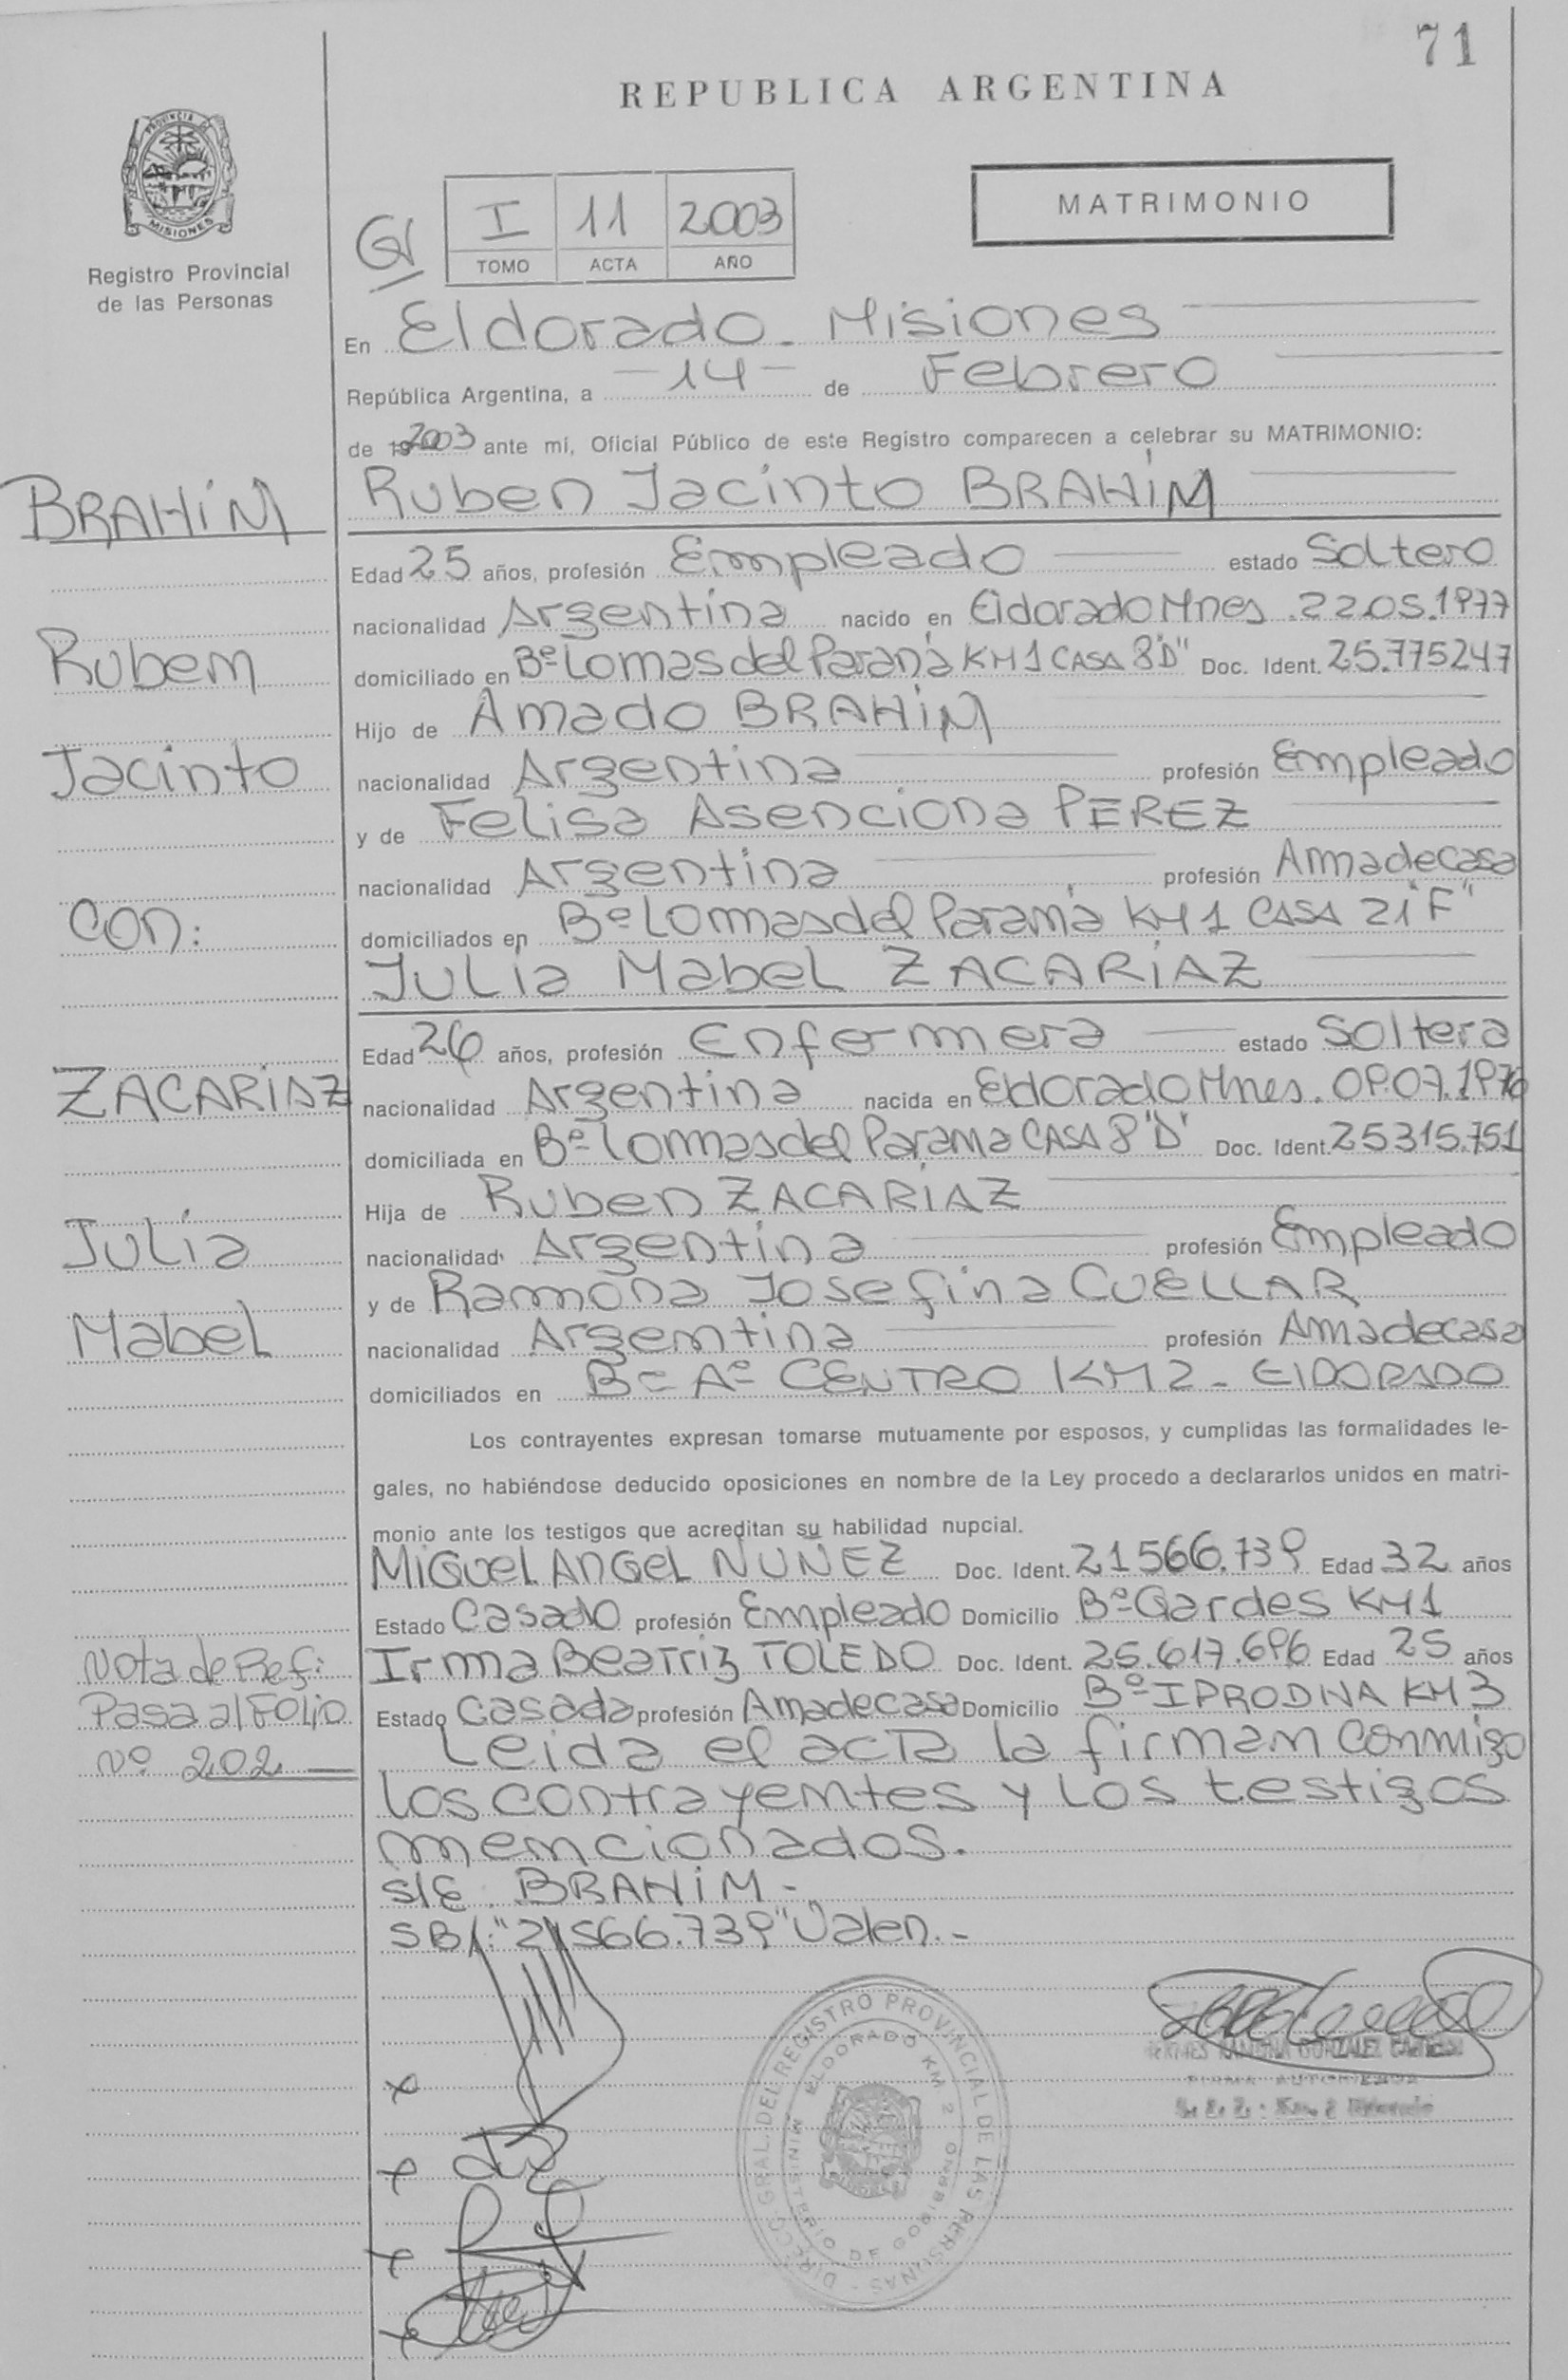 71
REPUBLICA ARGENTINA
PROVINCIA DE
MISIONES
Registro Provincial
de las Personas
I 11 2003
TOMO ACTA AÑO
MATRIMONIO
En Eldorado - Misiones
República Argentina, a -14- de Febrero
de 192003 ante mi, Oficial Público de este Registro comparecen a celebrar su MATRIMONIO:
BRAHIM
Ruben Jacinto BRAHIM
Edad 25 años, profesión Empleado estado Soltero
nacionalidad Argentina nacido en Eldorado Mnes. 22.05.1977
Ruben
domiciliado en Bº Lomas del Paraná KM 1 CASA 8 "D" Doc. Ident. 25.775247
Hijo de Amado BRAHIM
Jacinto
nacionalidad Argentina profesión Empleado
y de Felisa Asenciona PEREZ
nacionalidad Argentina profesión Amadecasa
CON:
domiciliados en Bº Lomas del Paraná KM 1 CASA 21 "F"
Julia Mabel ZACARIAZ
Edad 26 años, profesión Enfermera estado Soltera
ZACARIAZ
nacionalidad Argentina nacida en Eldorado Mnes. 09.07.1976
domiciliada en Bº Lomas del Parana CASA 8 "D" Doc. Ident. 25315.751
Hija de Ruben ZACARIAZ
Julia
nacionalidad Argentina profesión Empleado
y de Ramona Josefina CUELLAR
Mabel
nacionalidad Argentina profesión Amadecasa
domiciliados en Bº Aº CENTRO KM 2 - ElDORADO
Los contrayentes expresan tomarse mutuamente por esposos, y cumplidas las formalidades le-
gales, no habiéndose deducido oposiciones en nombre de la Ley procedo a declararlos unidos en matri-
monio ante los testigos que acreditan su habilidad nupcial.
Miguel Angel NUÑEZ Doc. Ident. 21566.739 Edad 32 años
Estado Casado profesión Empleado Domicilio Bº Gardes KM1
Nota de Ref:
Irma Beatriz TOLEDO Doc. Ident. 25.617.696 Edad 25 años
Pasa al Folio
Estado Casada profesión Amadecasa Domicilio Bº IPRODHA KM 3
Nº 202
Leida el acta la firman conmigo
los contrayentes y los testigos
mencionados.
S/E. BRAHIM -
SB/: "21566.739" Valen. -
DIRECC GRAL. DEL REGISTRO PROVINCIAL DE LAS PERSONAS
ELDORADO KM 2
MINISTERIO DE GOBIERNO
RAMONA GONZALEZ
FIRMA AUTORIZADA